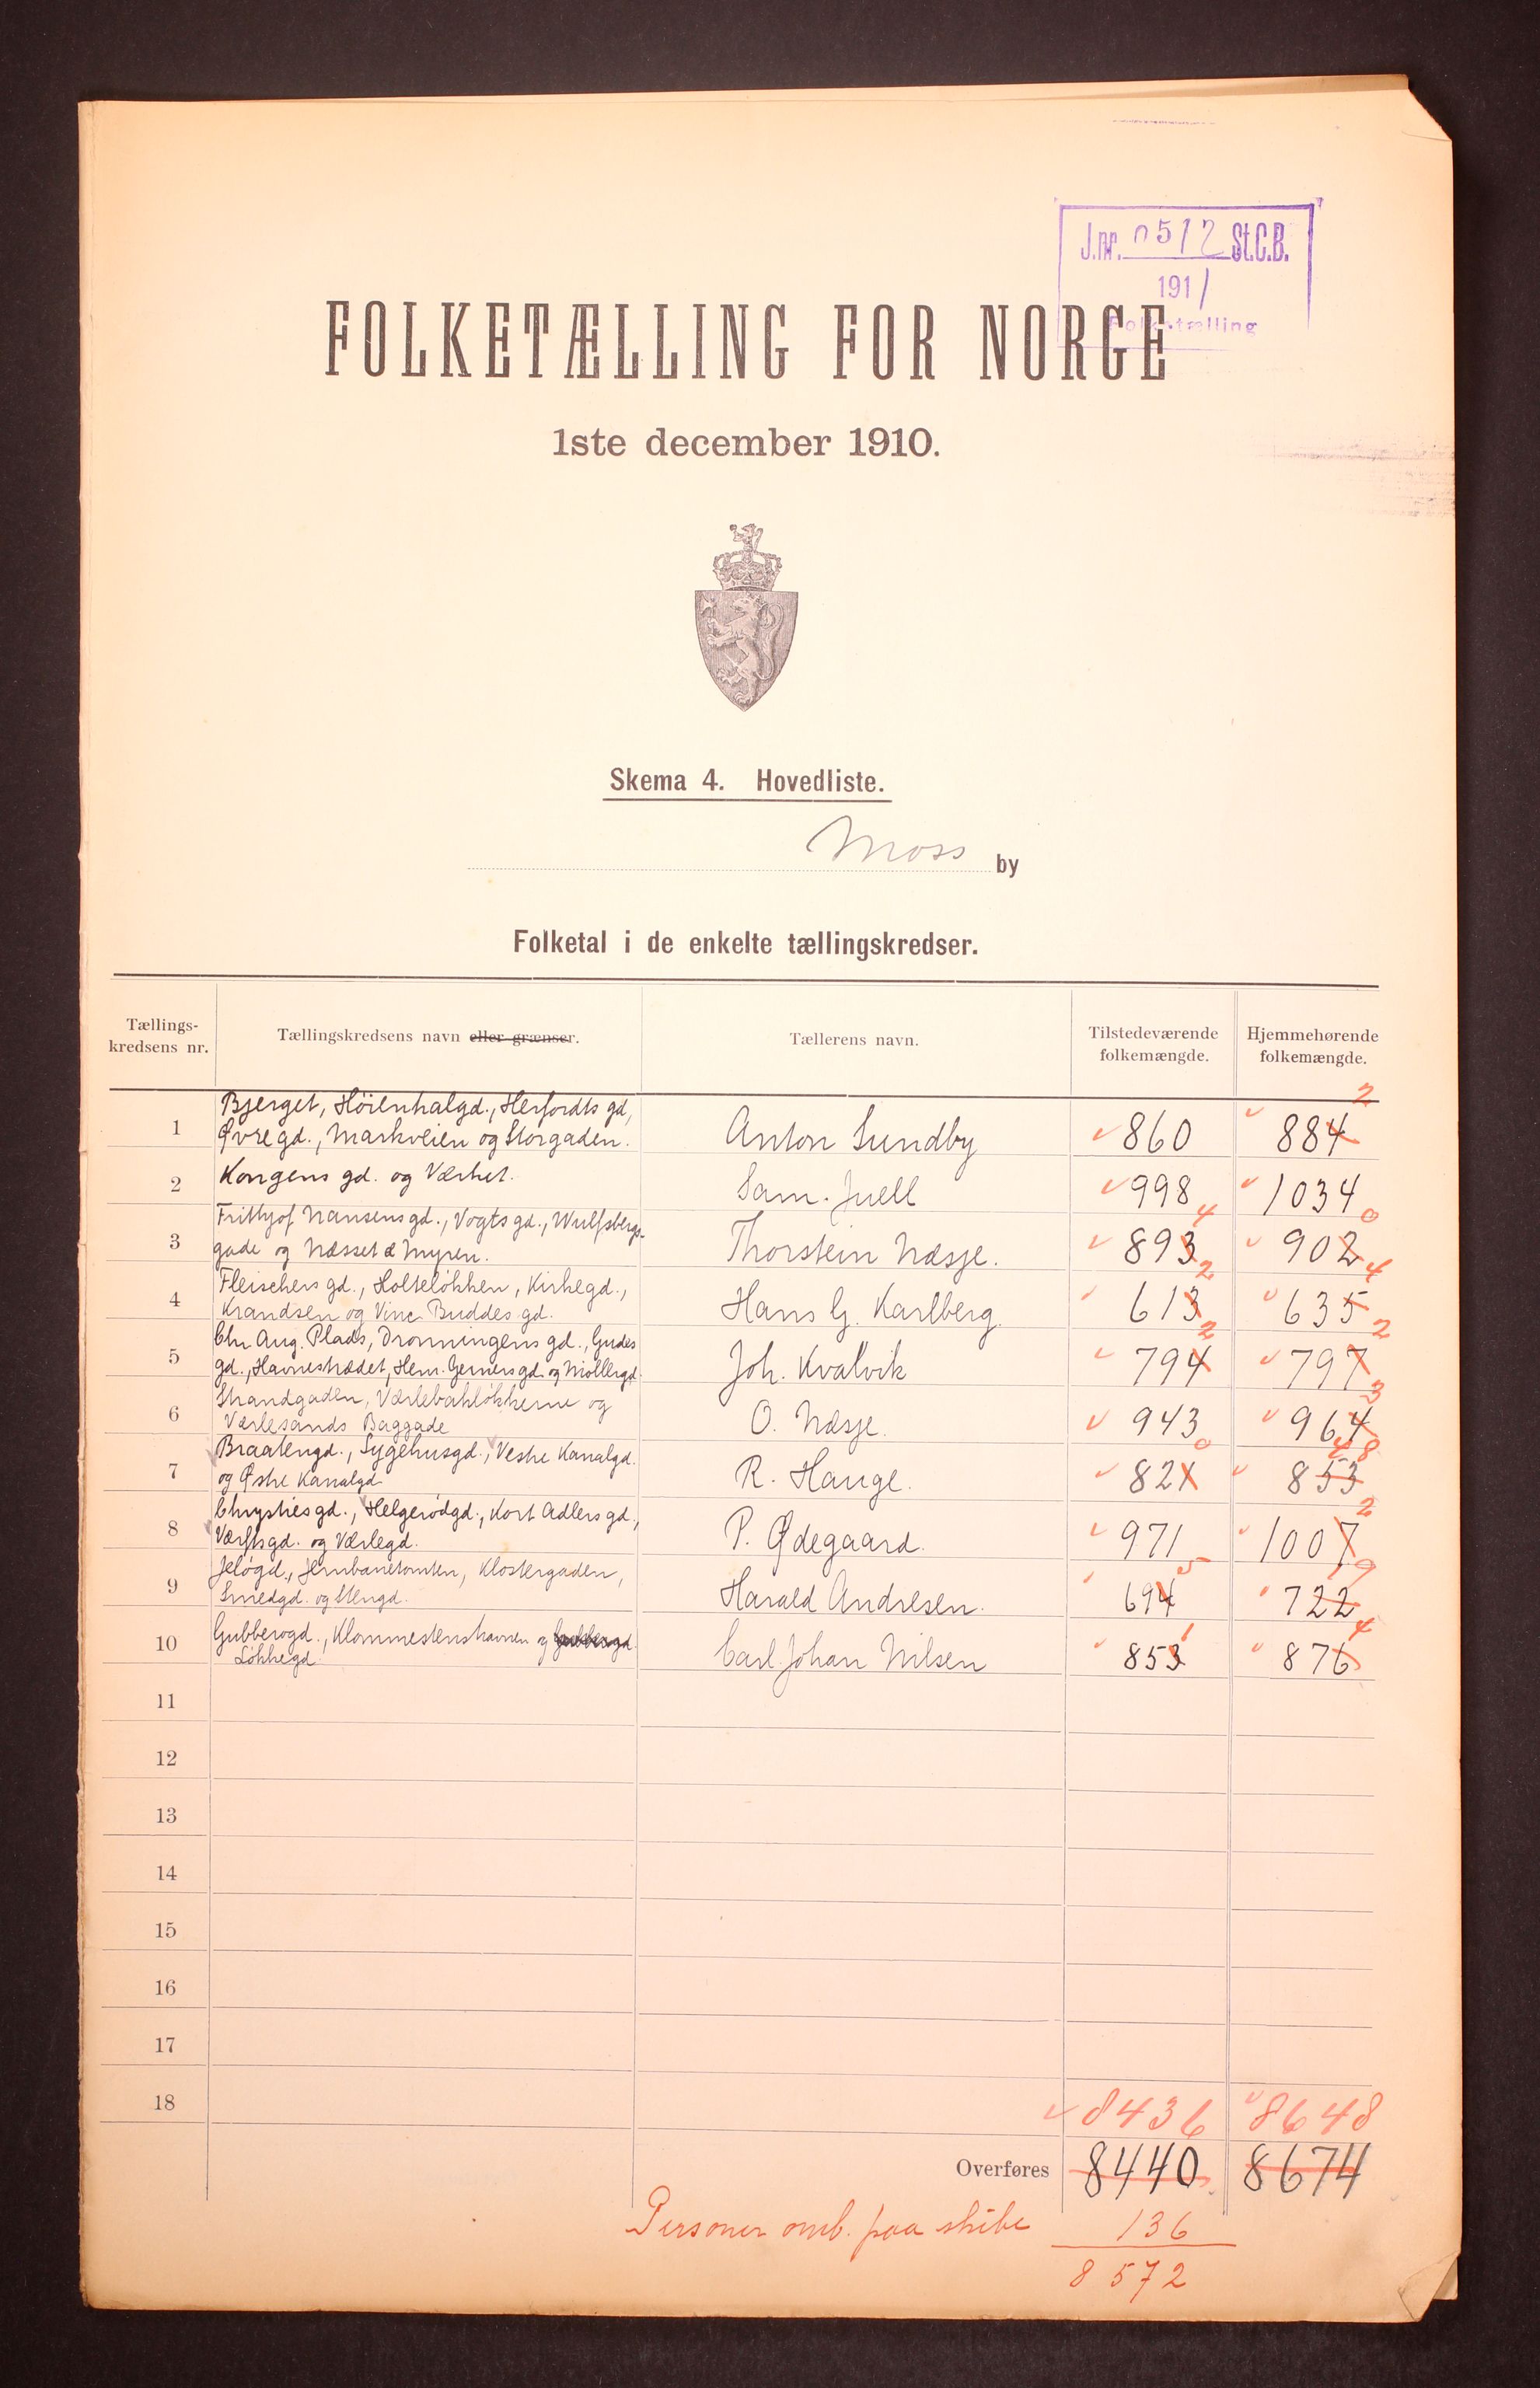 J.nr. 0512 St.C.B.
1911
Folketælling
FOLKETÆLLING FOR NORGE
1ste december 1910.
Skema 4. Hovedliste.
Moss by
Folketal i de enkelte tællingskredser.
Tællings-kredsens nr. Tællingskredsens navn eller grænser. Tællerens navn. Tilstedeværende folkemængde. Hjemmehørende folkemængde.
2
Bjerget, Höienhalgd., Herfordts gd,
1 Øvregd., Markveien og Storgaden. Anton Sundby 860 884
2 Kongens gd. og Værket. Sam. Juell 998 1034
4 0
Fritthjof Nansensgd., Vogts gd., Wulfsbergs-
3 gade og Næsset & Myren. Thorstein Næsje. 893 902
2 4
Fleischers gd., Holteløkken, Kirkegd.,
4 Krandsen og Vinc. Buddes gd. Hans G. Karlberg 613 635
2 2
Chr. Aug. Plads, Dronningens gd., Gudes
5 gd., Havnestrædet, Henr. Gerners gd. og Møllergd. Joh. Kvalvik 794 797
3
Strandgaden, Værlebakløkkerne og
6 Værlesands Baggade O. Næsje. 943 964
0 48
Braatengd., Sygehusgd., Vestre Kanalgd.
7 og Østre Kanalgd R. Hauge. 821 853
2
Chrystiesgd., Helgerödgd., Kort Adlers gd.,
8 Værftsgd. og Værlegd. P. Ødegaard. 971 1007
5 19
Jeløgd., Jernbanetomten, Klostergaden,
9 Smedgd. og Stengd. Harald Andresen. 694 722
1 4
10 Gubberogd., Klommestenshavnen og Gubberogd. Carl Johan Nilsen 853 876
Løkkegd
11
12
13
14
15
16
17
18
8436 8648
Overføres 8440 8674
Personer omb. paa skibe 136
8572